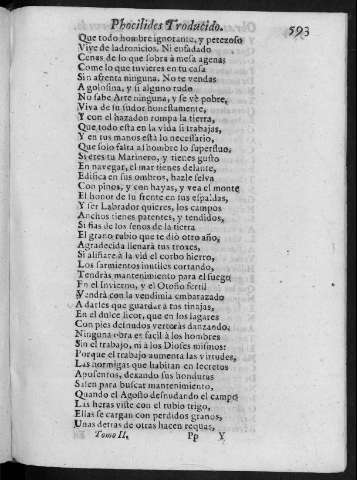 Phocilides Traducido.
593
Que todo hombre ignorante, y perezoso
Vive de ladronicios. Ni enfadado
Cenes de lo que sobra à mesa agenas
Come lo que tuvieres en tu casa
Sin afrenta ninguna. No te vendas
A golosina, y si alguno rudo
No sabe Arte ninguna, y se vè pobre,
Viva de su sudor honestamente,
Y con el hazadon rompa la tierra,
Que todo esta en la vida si trabajas,
Y en tus manos està lo necessario,
Que solo falta al hombre lo superfluo,
Si eres tu Marinero, y tienes gusto
En navegar, el mar tienes delante,
Edifica en sus ombros, hazle selva
Con pinos, y con hayas, y vea el monte
El honor de su frente en tus espaldas,
Y ser Labrador quieres, los campos
Anchos tienes patentes, y tendidos,
Si fias de los senos de la tierra
El grano rubio que te diò otro año,
Agradecida llenarà tus troxes.
Si aliñare à la vid el corbo hierro,
Los sarmientos inutiles cortando,
Tendràs mantenimiento para el fuego
En el Invierno, y el Otoño fertil
Vendrà con la vendimia embarazado
A darles que guardar à tus tinajas,
En el dulce licor, que en los lagares
Con pies desnudos verteràs danzando.
Ninguna obra es facil à los hombres
Sin el trabajo, ni à los Dioses mismos:
Porque el trabajo aumenta las virtudes,
Las hormigas que habitan en secretos
Aposentos, dexando sus honduras
Salen para buscar mantenimiento,
Quando el Agosto desnudando el campo
Las heras viste con el rubio trigo,
Ellas se cargan con perdidos granos,
Unas detras de otras hacen requas,
Tomo II. Pp Y